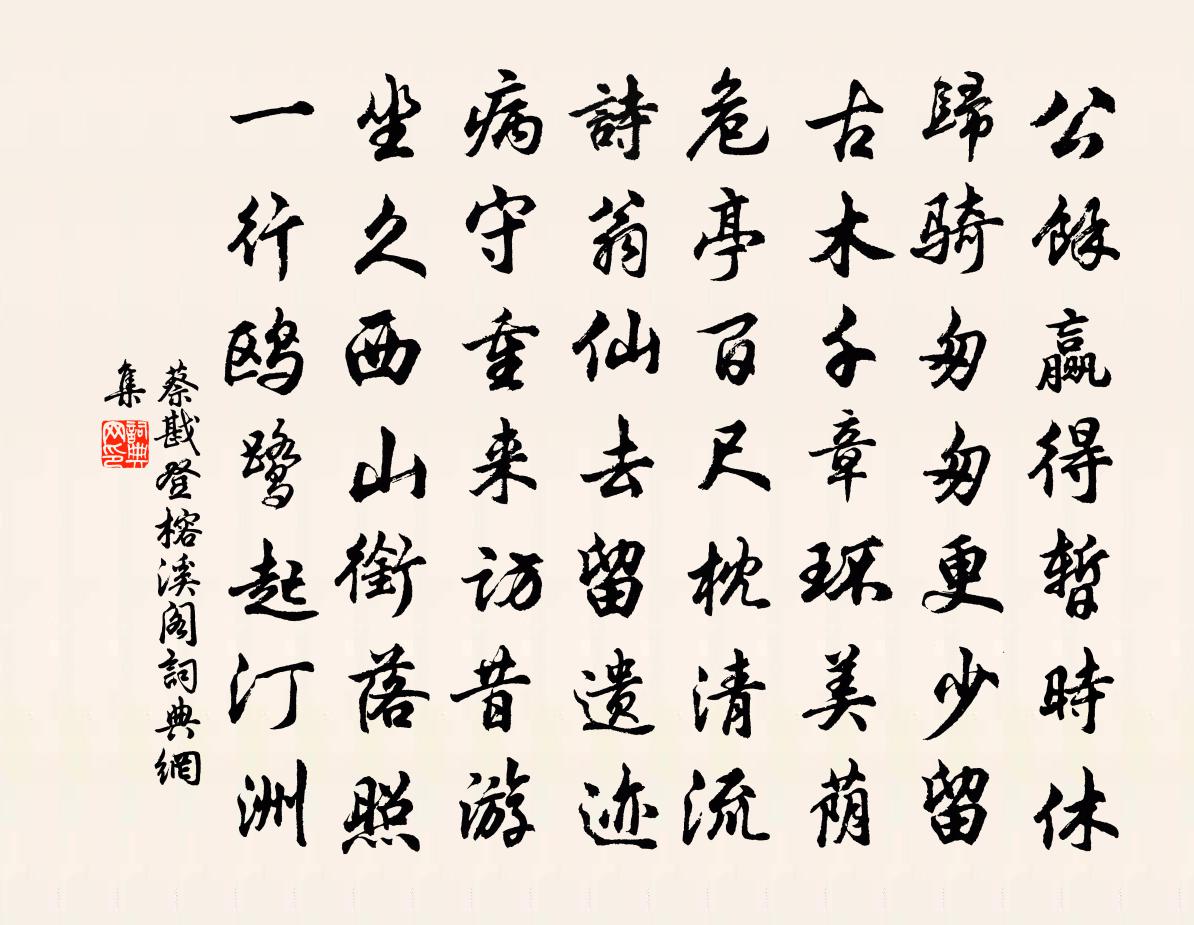 公餘贏得暫時休
歸骑匆匆更少留
古木千章环美荫
危亭百尺枕清流
詩翁仙去留遗迹
病守重来访昔游
坐久西山銜落照
一行鸥鹭起汀洲
蔡戡登榕溪阁詞典網
集
詞典网印